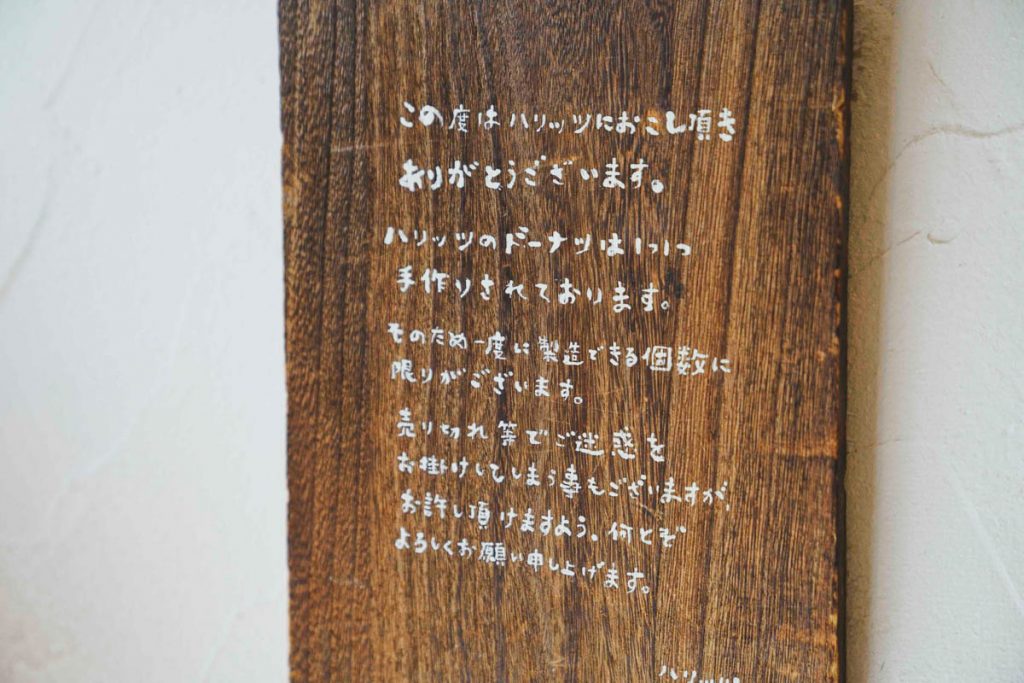 この度はハリッツにおこし頂き
ありがとうございます。
ハリッツのドーナツは1つ1つ
手作りされております。
そのため一度に製造できる個数に
限りがございます。
売り切れ等でご迷惑を
お掛けしてしまう事もございますが、
お許し頂けますよう。何とぞ
よろしくお願い申し上げます。
ハリッツ